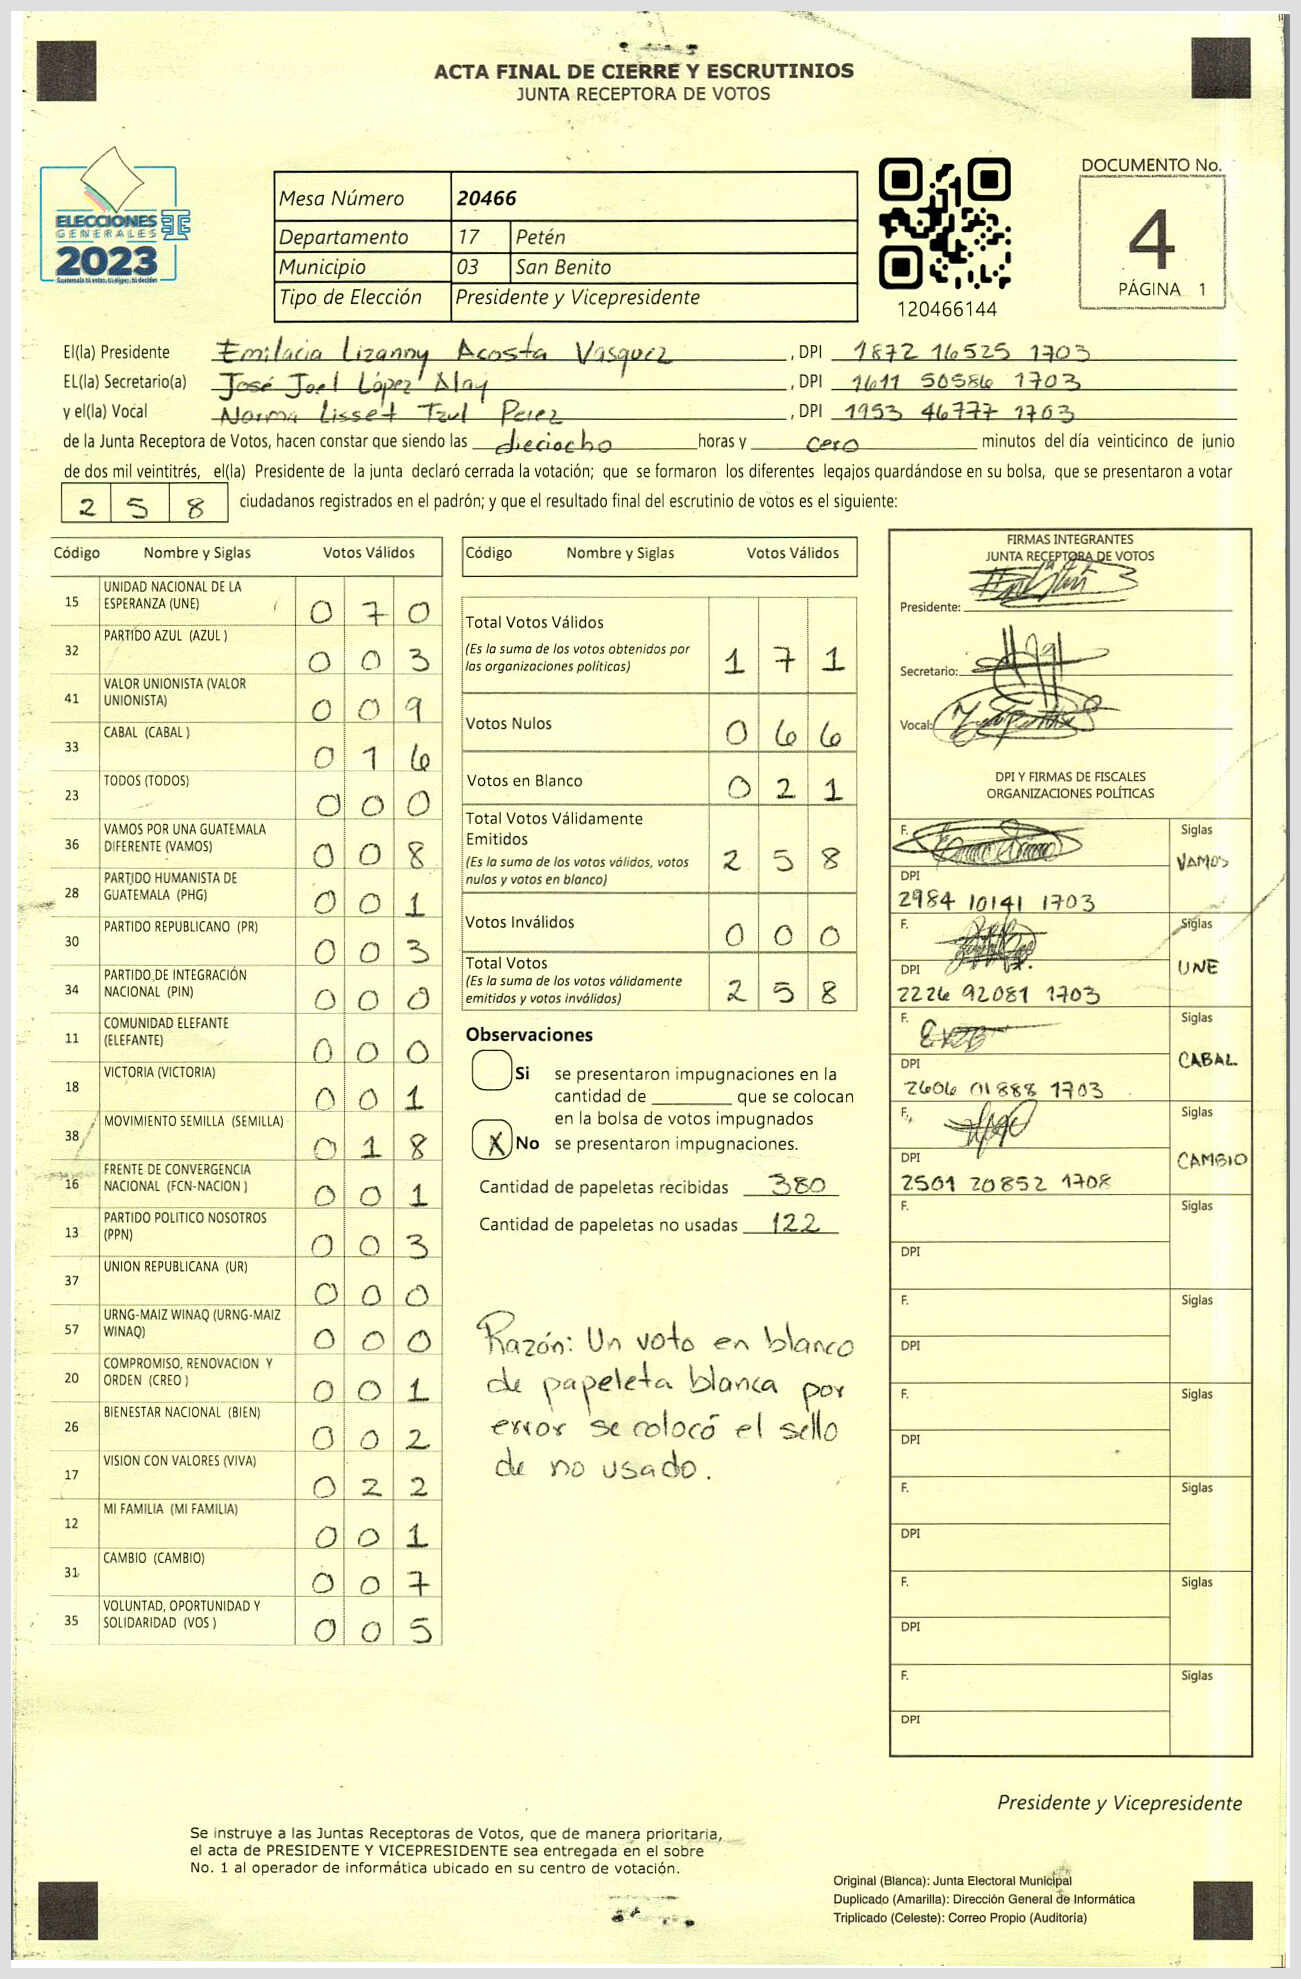 ACTA FINAL DE CIERRE Y ESCRUTINIOS
JUNTA RECEPTORA DE VOTOS
ELECCIONES
GENERALES
2023
Mesa Número 20466
Departamento 17 Petén
Municipio 03 San Benito
Tipo de Elección Presidente y Vicepresidente
120466144
DOCUMENTO No.
4
PÁGINA 1
El(la) Presidente Emilacia Lizanny Acosta Vasquez, DPI 1872 16525 1703
EL(la) Secretario(a) José Joel López Alay, DPI 1611 50586 1703
y el(la) Vocal Norma Lisset Tzul Perez, DPI 1953 46777 1703
de la Junta Receptora de Votos, hacen constar que siendo las dieciocho horas y cero minutos del día veinticinco de junio
de dos mil veintitrés, el(la) Presidente de la junta declaró cerrada la votación; que se formaron los diferentes legajos guardándose en su bolsa, que se presentaron a votar
258 ciudadanos registrados en el padrón; y que el resultado final del escrutinio de votos es el siguiente:
Código Nombre y Siglas Votos Válidos
15 UNIDAD NACIONAL DE LA
ESPERANZA (UNE) 070
32 PARTIDO AZUL (AZUL ) 003
41 VALOR UNIONISTA (VALOR
UNIONISTA) 009
33 CABAL (CABAL ) 016
23 TODOS (TODOS) 000
36 VAMOS POR UNA GUATEMALA
DIFERENTE (VAMOS) 008
28 PARTIDO HUMANISTA DE
GUATEMALA (PHG) 001
30 PARTIDO REPUBLICANO (PR) 003
34 PARTIDO DE INTEGRACIÓN
NACIONAL (PIN) 000
11 COMUNIDAD ELEFANTE
(ELEFANTE) 000
18 VICTORIA (VICTORIA) 001
38 MOVIMIENTO SEMILLA (SEMILLA) 018
16 FRENTE DE CONVERGENCIA
NACIONAL (FCN-NACION ) 001
13 PARTIDO POLITICO NOSOTROS
(PPN) 003
37 UNION REPUBLICANA (UR) 000
57 URNG-MAIZ WINAQ (URNG-MAIZ
WINAQ) 000
20 COMPROMISO, RENOVACION Y
ORDEN (CREO ) 001
26 BIENESTAR NACIONAL (BIEN) 002
17 VISION CON VALORES (VIVA) 022
12 MI FAMILIA (MI FAMILIA) 001
31 CAMBIO (CAMBIO) 007
35 VOLUNTAD, OPORTUNIDAD Y
SOLIDARIDAD (VOS ) 005
Código Nombre y Siglas Votos Válidos
Total Votos Válidos
(Es la suma de los votos obtenidos por
las organizaciones políticas) 171
Votos Nulos 066
Votos en Blanco 021
Total Votos Válidamente
Emitidos
(Es la suma de los votos válidos, votos
nulos y votos en blanco) 258
Votos Inválidos 000
Total Votos
(Es la suma de los votos válidamente
emitidos y votos inválidos) 258
Observaciones
Si se presentaron impugnaciones en la
cantidad de ________ que se colocan
en la bolsa de votos impugnados
X No se presentaron impugnaciones.
Cantidad de papeletas recibidas 380
Cantidad de papeletas no usadas 122
Razón: Un voto en blanco
de papeleta blanca por
error se colocó el sello
de no usado.
FIRMAS INTEGRANTES
JUNTA RECEPTORA DE VOTOS
Presidente:
Secretario:
Vocal:
DPI Y FIRMAS DE FISCALES
ORGANIZACIONES POLÍTICAS
F. Siglas
VAMOS
DPI
2984 10141 1703
F. Siglas
UNE
DPI
2226 92081 1703
F. Siglas
CABAL
DPI
2606 01888 1703
F. Siglas
CAMBIO
DPI
2501 20852 1708
F. Siglas
DPI
F. Siglas
DPI
F. Siglas
DPI
F. Siglas
DPI
F. Siglas
DPI
F. Siglas
DPI
Presidente y Vicepresidente
Se instruye a las Juntas Receptoras de Votos, que de manera prioritaria,
el acta de PRESIDENTE Y VICEPRESIDENTE sea entregada en el sobre
No. 1 al operador de informática ubicado en su centro de votación.
Original (Blanca): Junta Electoral Municipal
Duplicado (Amarilla): Dirección General de Informática
Triplicado (Celeste): Correo Propio (Auditoría)